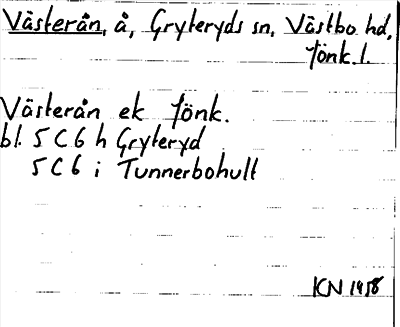 Västerån, å, Gryteryds sn, Västbo hd,
Jönk. l.
Västerån ek Jönk.
bl. 5C6h Gryteryd
5C6i Tunnerbohult
KN 1958